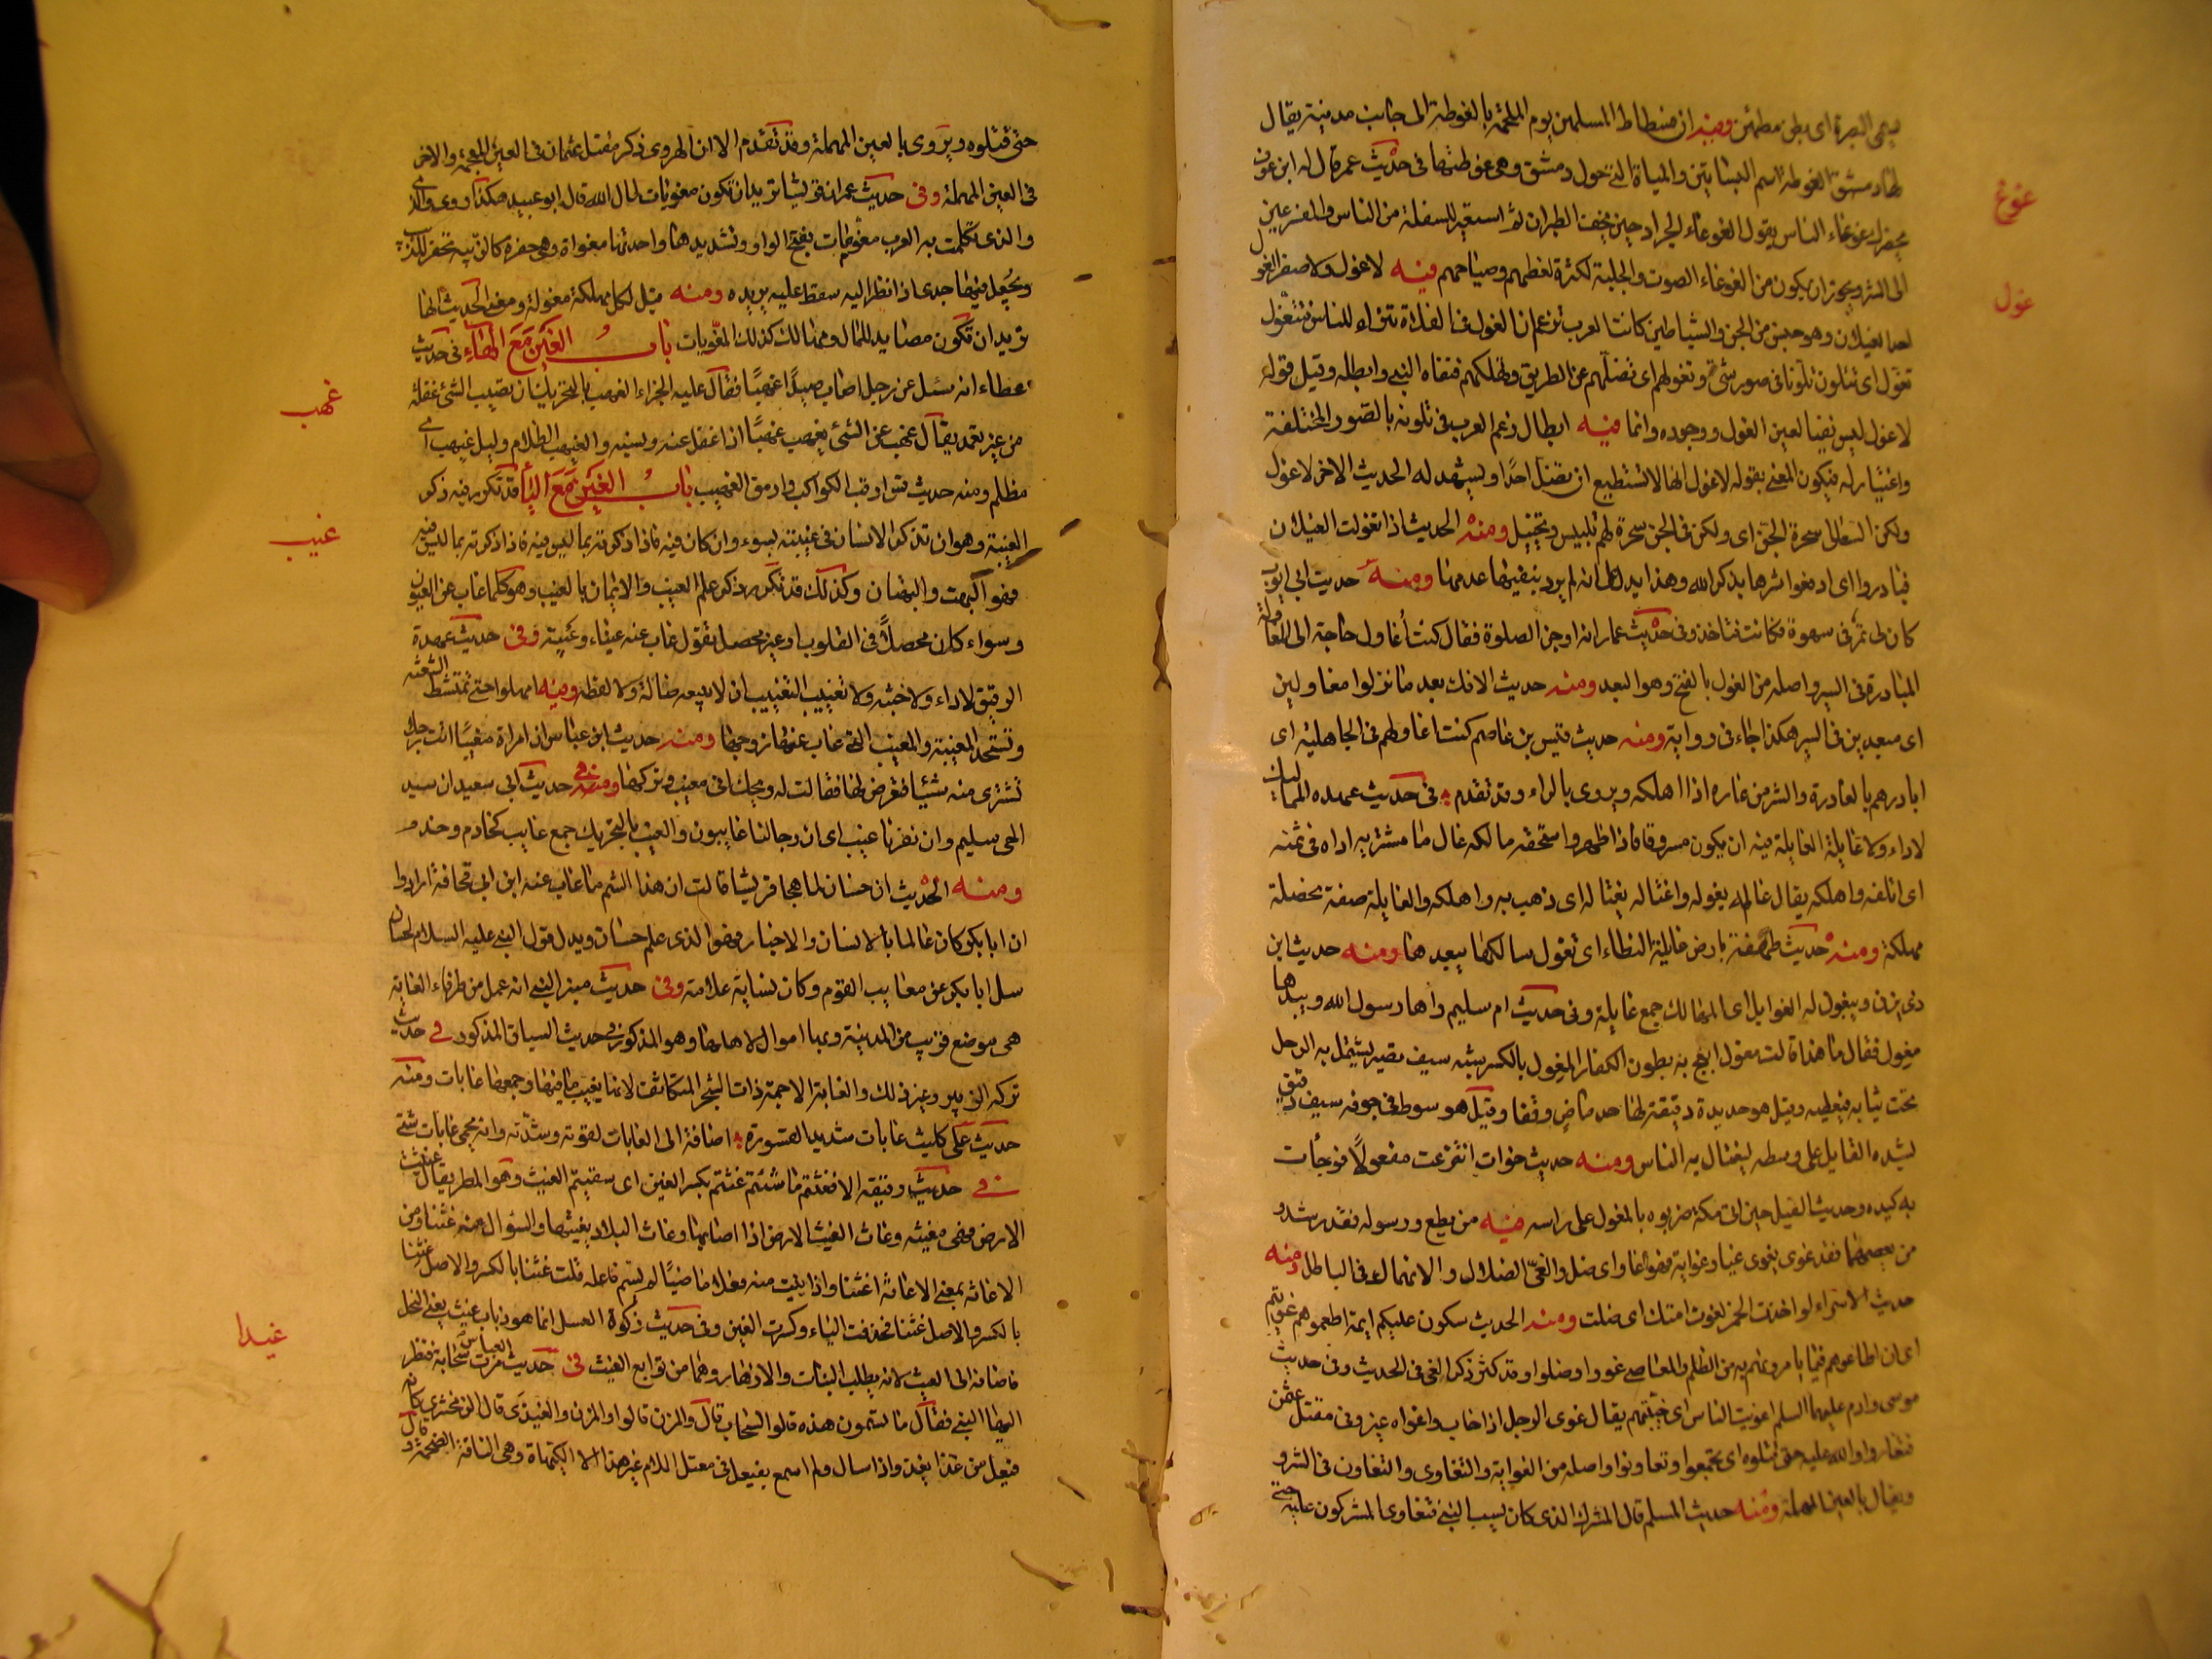 يدعى البصرة اى بطن مطمئن ومنه ان فسطاط المسلمين يوم الملحمة بالغوطة الى جانب مدينة يقال
لها دمشق الغوطة اسم البساتين والمياة التى حول دمشق وهى غوطتها فى حديث عمر قال له ابن عوف
غوغ
يحضرك غوغاء الناس يقول الغوغاء الجراد حين يخف الطيران ثم استعير للسفلة من الناس والمتسرعين
الى الشر ويجوز ان يكون من الغوغاء الصوت والجلبة لكثرة لغطهم وصياحهم فيه لا غول ولا صفر الغول
غول
احد الغيلان وهو جنس من الجن والشياطين كانت العرب تزعم ان الغول فى الفلاة تتراء للناس فتتغول
تغول اى تتلون تلونا فى صور شتى وتغولهم اى تضلهم عن الطريق وتهلكهم فنفاه النبى وابطله وقيل قوله
لا غول ليس نفيا لعين الغول ووجوده وانما فيه ابطال زعم العرب فى تلونه بالصور المختلفة
واغتياله فيكون المعنى بقوله لا غول انها لا تستطيع ان تضل احدا ويشهد له الحديث الاخر لا غول
ولكن السعالى سحرة الجن اى ولكن فى الجن سحرة لهم تلبيس وتخييل ومنه الحديث اذا تغولت الغيلان
فبادروا اى ادفعوا شرها بذكر الله وهذا يدل على انه لم يرد بنفيها عدمها ومنه حديث ابى ايوب
كان لى تمر فى سهوة فكانت الغول تاخذ وفى حديث عمار انه اوجز الصلوة فقال كنت أغاول حاجة الى المغاولة
المبادرة فى السير واصله من الغول بالفتح وهو البعد ومنه حديث الافك بعد ما نزلوا مغاولين
اى مبعدين فى السير هكذا جاء فى رواية ومنه حديث قيس بن عاصم كنت اغاولهم فى الجاهلية اى
ابادرهم بالغارة والشر من غاره اذا اهلكه ويروى بالراء وقد تقدم فى حديث عهده المماليك
لا داء ولا غايلة الغايلة فيه ان يكون مسروقا فاذا ظهر واستحقه مالكه غال مال مشتريه اداه فى ثمنه
اى اتلفه واهلكه يقال غاله يغوله واغتاله يغتاله اى ذهب به واهلكه والغايلة صفة بخصلة
مهلكة ومنه حديث طهفة بارض غايلة النطاء اى تغول سالكها ببعدها ومنه حديث ابن
ذى يزن ويبغون له الغوايل اى المهالك جمع غايلة وفى حديث ام سليم رآها رسول الله وبيدها
مغول فقال ما هذا قالت مغول ابعج به بطون الكفار المغول بالكسر شبه سيف قصير يشتمل به الرجل
تحت ثيابه فيغطيه وقيل هو حديدة دقيقة لها حد ماض وقفا وقيل هو سوط فى جوفه سيف دقيق
يشده الفاتك على وسطه ليغتال به الناس ومنه حديث خوات انتزعت مغولا فوجأت
به كبده وحديث الفيل حين اتى مكة ضربوه بالمغول على راسه فيه من يطع ورسوله فقد رشد و
من يعصهما فقد غوى يغوى غيا وغواية فهو غاو اى ضل والغى الضلال والانهماك فى الباطل ومنه
حديث الاسراء لو اخذت الخمر لغوت امتك اى ضلت ومنه الحديث سكون عليكم ايمة ان اطعموهم غويتم
اى ان اطاعوهم فيما يامرونهم به من الظلم والمعاصى غووا وضلوا وقد كثر ذكر الغى فى الحديث وفى حديث
موسى وادم عليهما السلم اغويت الناس اى خيبتهم يقال غوى الرجل اذا خاب واغواه غيره وفى مقتل عثمن
فتغاووا والله عليه حتى قتلوه اى تجمعوا وتعاونوا واصله من الغواية والتغاوى والتعاون فى الشر و
ويقال بالعين المهملة ومنه حديث المسلم قاتل المشرك الذى كان يسب النبى فتغاوى المشركون عليه حتى
حتى قتلوه ويروى بالعين المهملة وقد تقدم الا ان الهروى ذكر مقتل عثمان فى الغين المعجمة والاخر
فى العين المهملة وفى حديث عمر ان قريشا تريد ان تكون مغويات لمال الله قال ابو عبيد هكذا روى
والذى تكلمت به العرب مغويات بفتح الواو وتشديدها واحدتها مغواة وهى حفرة كالزبية تحفر للذئب
ويجعل فيها جدى اذا نظر اليه سقط عليه يريده ومنه قيل لكل مهلكة مغواة ومعنى الحديث انها
تريد ان تكون مصايد للمال ومهالك كذلك المغويات باب الغين مع الهاء فى حديث
غهب
عطاء انه سئل عن رجل اصاب صيدا غهبا فقال عليه الجزاء الغهب بالتحريك ان يصيب الشئ غفلة
من غير تعمد يقال غهب عن الشئ يغهب غهبا اذا غفل عنه ونسيه والغيهب الظلام وليل غيهب اى
مظلم ومنه حديث قس ارقب الكواكب وارمق الغيهب باب الغين مع الياء قد تكرر فيه ذكر
غيب
الغيبة وهو ان تذكر الانسان فى غيبته بسوء وان كان فيه فاذا ذكرته بما ليس فيه فاذا ذكرته بما ليس فيه
فهو البهت والبهتان وكذلك قد تكرر ذكر علم الغيب والايمان بالغيب وهو كلما غاب عن العيون
وسواء كان محصلا فى القلوب او غير محصل تقول غاب عنه غيبا وغيبة وفى حديث عهدة
الرقيق لا داء ولا خبثة ولا تغييب التغييب ان لا يبيعه ضالة ولا لقطة ومنه امهلوا حتى تمتشط الشعثة
وتستحد المغيبة والمغيب التى غاب عنها زوجها ومنه حديث ابن عباس ان امراة مغيبا اتت رجلا
تشترى منه شيئا فتعرض لها فقالت له ويحك انى مغيب وتركها ومنه حديث ابى سعيد ان سيد
الحى سليم وان نفرنا غيب اى ان رجالنا غايبون والغيب بالتحريك جمع غايب كخادم وخدم
ومنه الحديث ان حسان لما هجا قريشا قالت ان هذا الشتم ما غاب عنه ابن ابى قحافة ارادوا
ان ابا بكر كان عالما بالانساب والاخبار فهو الذى علم حسان ويدل قول النبى عليه السلام لحسان
سل ابا بكر عن معايب القوم وكان نسابة علامة وفى حديث منبر النبى انه عمل من طرفاء الغابة
هى موضع قريب من المدينة وبها اموال لاهلها وهو المذكور فى حديث السباق المذكور فى حديث
تركة الزبير وغير ذلك والغابة الاجمة ذات الشجر المتكاثف لانها تغيب ما فيها وجمعها غابات ومنه
حديث على كليث غابات شديد القسورة اضافة الى الغابات لقوته وشدته وانه يحمى غابات شتى
غيث
فى حديث رقيقة الا فغثتم ما شئتم غثتم بكسر الغين اى سقيتم الغيث وهو المطر يقال
الارض فهى مغيثة وغاث الغيث الارض اذا اصابها وغاث البلاد يغيثها والسؤال منه غثنا ومن
الاغاثة بمعنى الاعانة اغثنا واذا بنيت منه فعلا ماضيا لم يسم فاعله قلت غثنا بالكسر والاصل غيثنا
بالكسر والاصل غيثنا فحذفت الياء وكسرت الغين وفى حديث زكوة العسل انما هو ذباب غيث يعنى النحل
غيدا
فاضافه الى الغيث لانه يطلب النبات والازهار وهما من توابع الغيث فى حديث العباس مرت سحابة فنظر
اليها النبى فقال ما تسمون هذه قالوا السحاب قال والمزن قالوا والمزن والغيذى قال الزمخشرى كانه
فيعل من غذا يغذو اذا سال ولم اسمع بفيعل فى معتل اللام غير هذا الا الكيهاة وهى الناقة الضخمة و